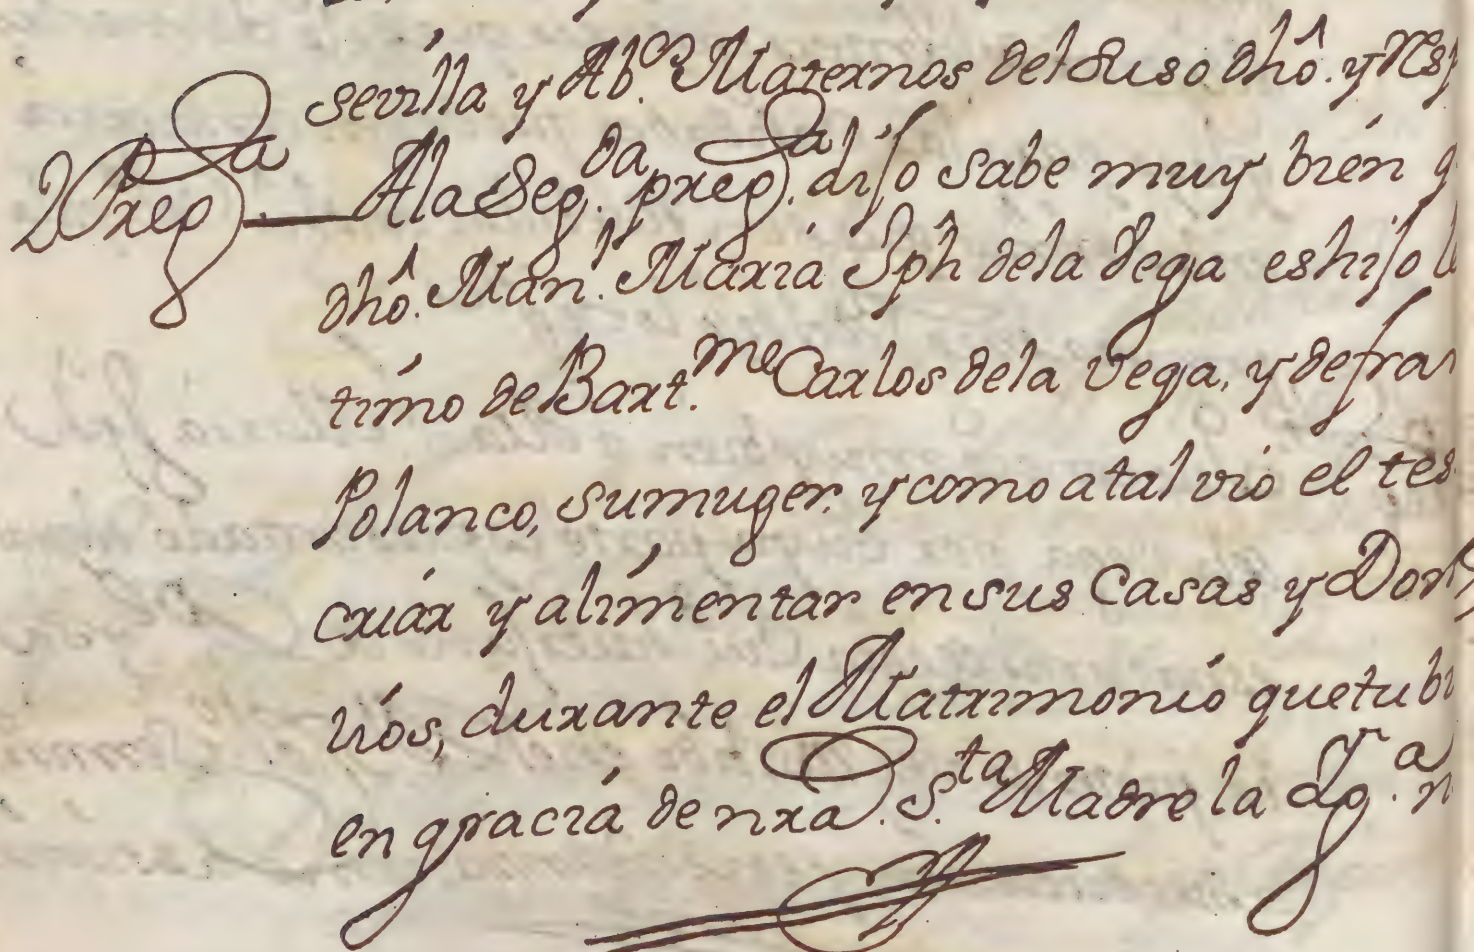 sevilla y Ab.os Maternos del Suso dhô. y Resp
2 Preg.ta
A la Seg.da preg.ta dijo sabe muy bien q
dhô. Man.l Maria Jph dela Vega es hijo le
timo de Bart.me Carlos dela Vega, y de fran
Polanco, su muger. y como a tal vio el tes
criar y alimentar en sus Casas y Dor
rios, durante el Matrimonio que tubi
en gracia de nra. S.ta Madre la Ig.a n